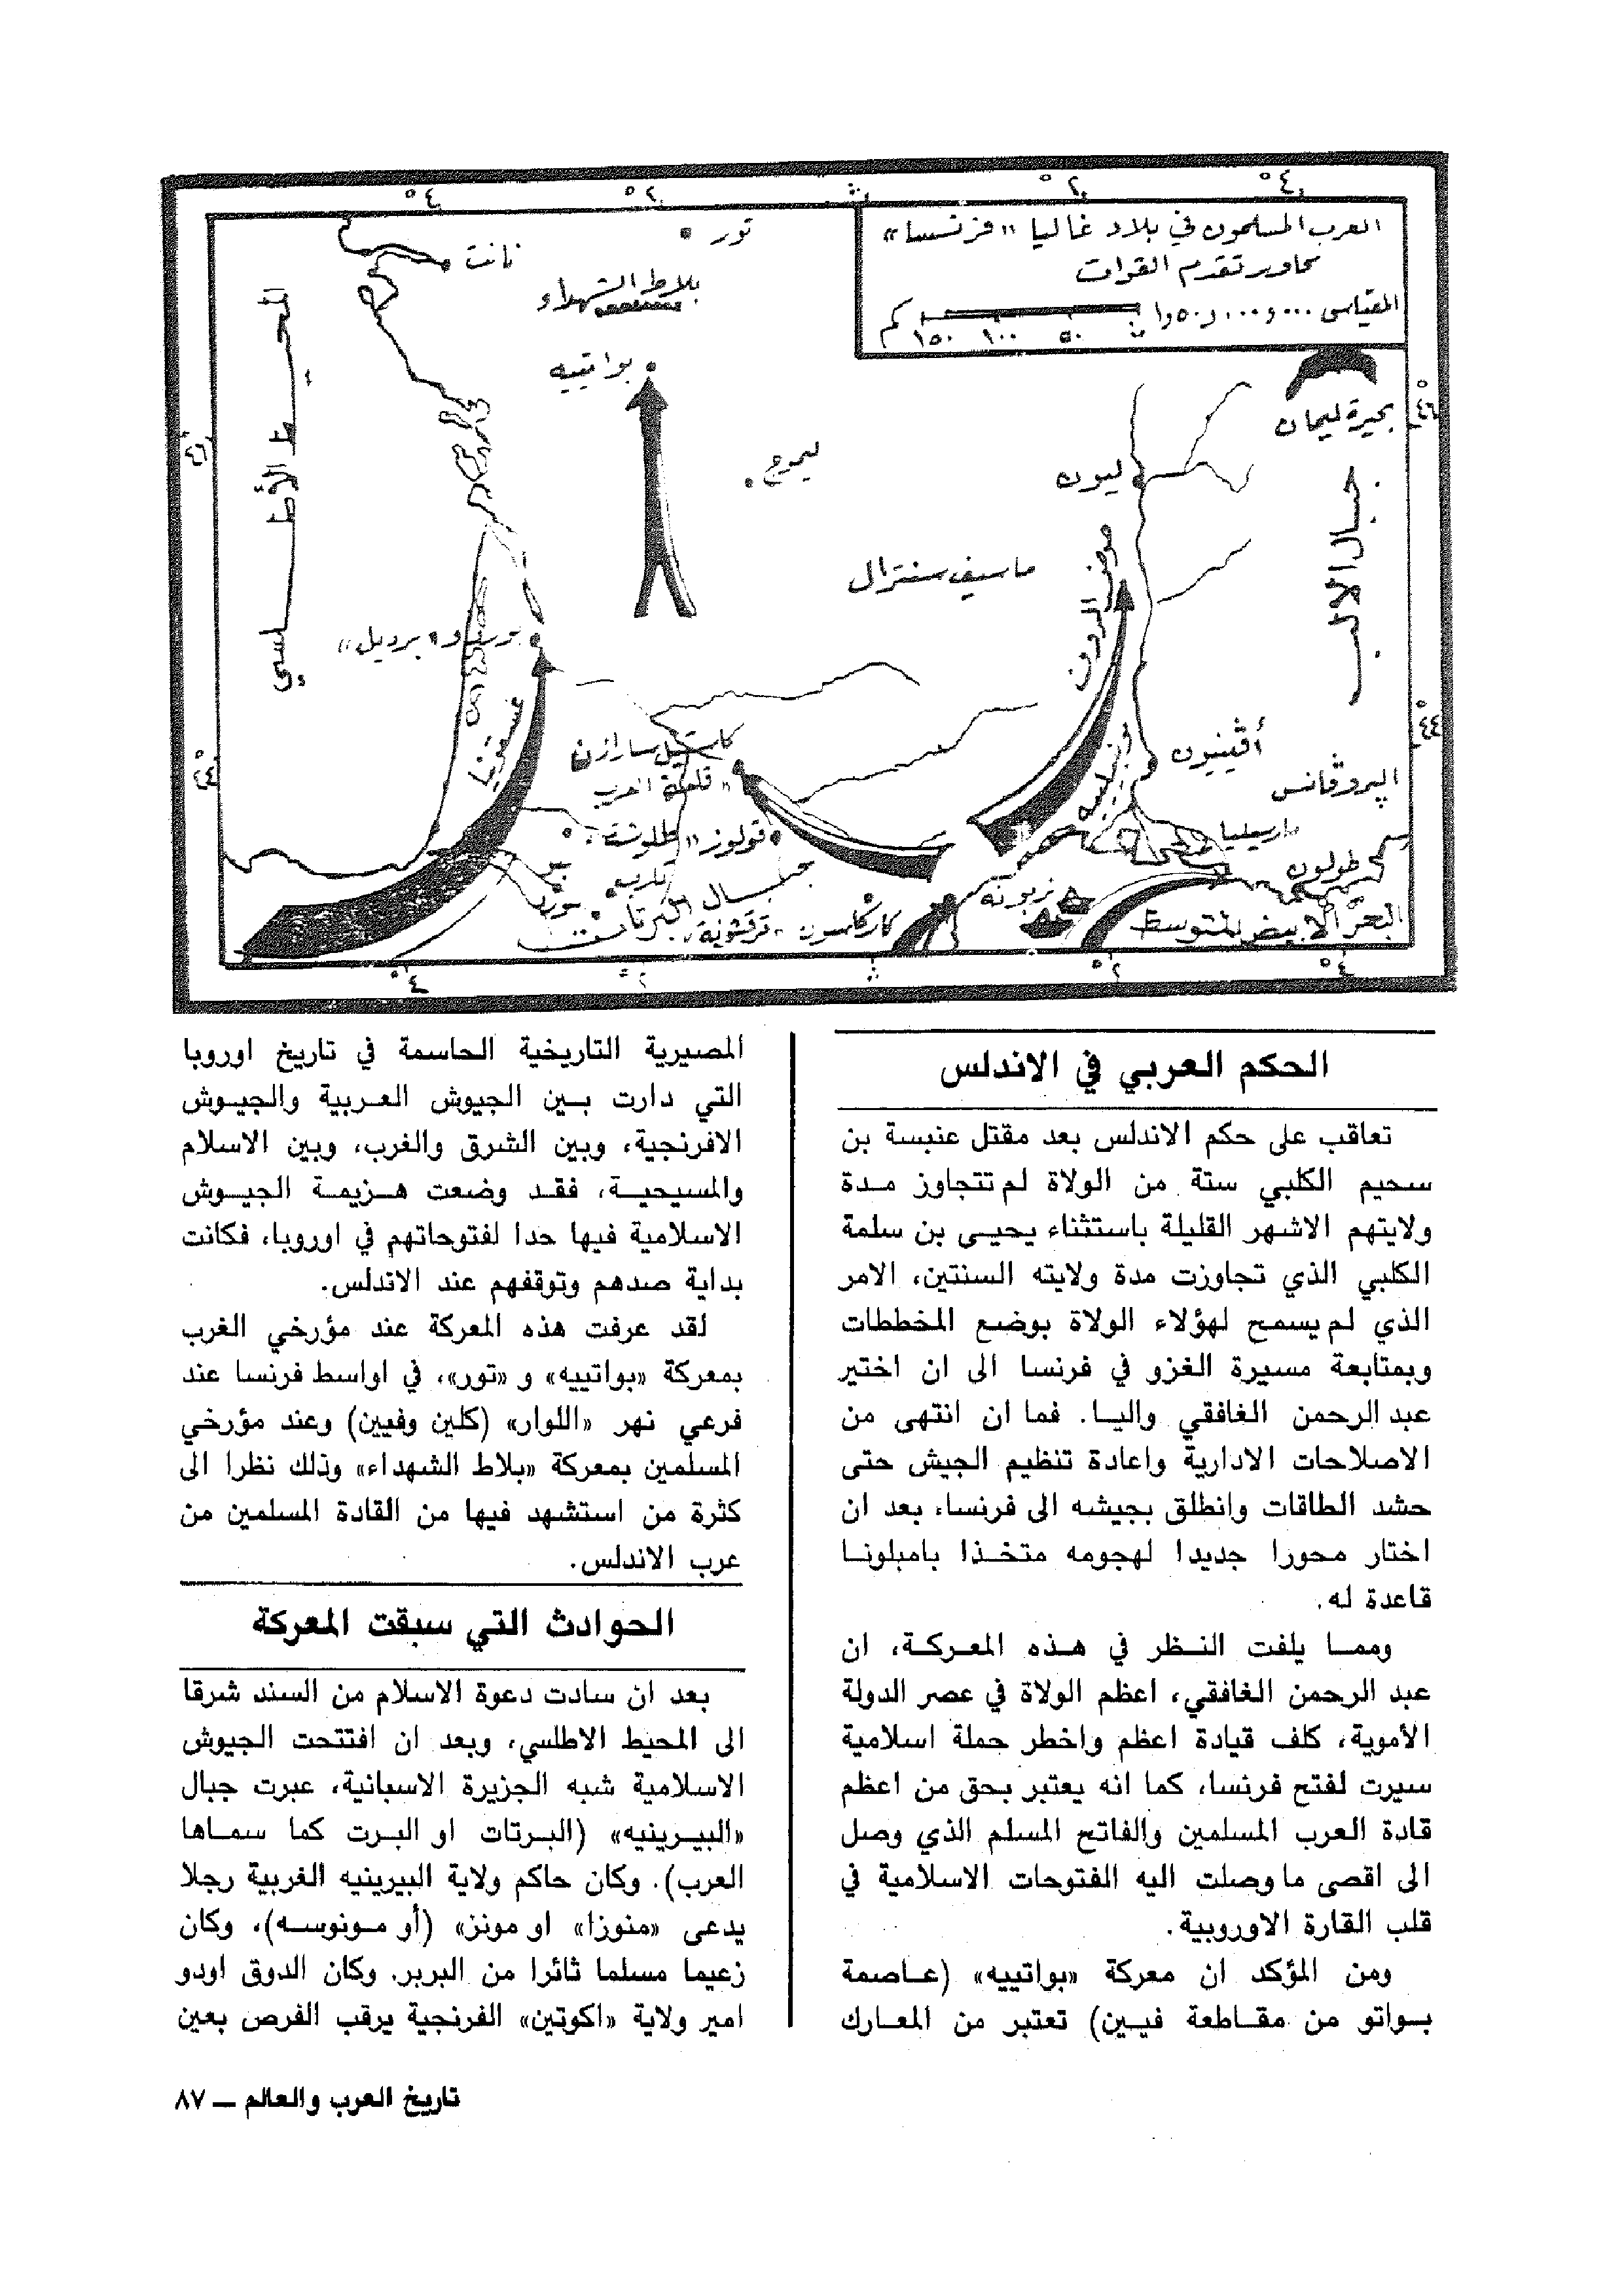 العرب المسلمون في بلاد غاليا «فرنسا»
محاور تقدم القوات
المقياس
١٥٠ ١٠٠ ٥٠ كم
تور
نانت
بلاط الشهداء
بواتييه
المحيط الأطلسي
بحيرة ليمان
ليون
ليموج
جبال الالب
ماسيف سنترال
حوض الرون
بوردو «برديل»
غسقونيا
كاستيل سارازن
«قلعة العرب
أڤينيون
البروڤانس
تولوز «طلوشة»
مارسيليا
طولون
تارب
جبال البرتات
كاركاسون «قرقشونة»
نربونة
البحر الابيض المتوسط
الحكم العربي في الاندلس
تعاقب على حكم الاندلس بعد مقتل عنبسة بن
سحيم الكلبي ستة من الولاة لم تتجاوز مدة
ولايتهم الاشهر القليلة باستثناء يحيى بن سلمة
الكلبي الذي تجاوزت مدة ولايته السنتين، الامر
الذي لم يسمح لهؤلاء الولاة بوضع المخططات
وبمتابعة مسيرة الغزو في فرنسا الى ان اختير
عبد الرحمن الغافقي واليا. فما ان انتهى من
الاصلاحات الادارية واعادة تنظيم الجيش حتى
حشد الطاقات وانطلق بجيشه الى فرنسا، بعد ان
اختار محورا جديدا لهجومه متخذا بامبلونا
قاعدة له.
ومما يلفت النظر في هذه المعركة، ان
عبد الرحمن الغافقي، اعظم الولاة في عصر الدولة
الأموية، كلف قيادة اعظم واخطر حملة اسلامية
سيرت لفتح فرنسا، كما انه يعتبر بحق من اعظم
قادة العرب المسلمين والفاتح المسلم الذي وصل
الى اقصى ما وصلت اليه الفتوحات الاسلامية في
قلب القارة الاوروبية.
ومن المؤكد ان معركة «بواتييه» (عاصمة
بواتو من مقاطعة فيين) تعتبر من المعارك
المصيرية التاريخية الحاسمة في تاريخ اوروبا
التي دارت بين الجيوش العربية والجيوش
الافرنجية، وبين الشرق والغرب، وبين الاسلام
والمسيحية، فقد وضعت هزيمة الجيوش
الاسلامية فيها حدا لفتوحاتهم في اوروبا، فكانت
بداية صدهم وتوقفهم عند الاندلس.
لقد عرفت هذه المعركة عند مؤرخي الغرب
بمعركة «بواتييه» و «تور»، في اواسط فرنسا عند
فرعي نهر «اللوار» (كلين وفيين) وعند مؤرخي
المسلمين بمعركة «بلاط الشهداء» وذلك نظرا الى
كثرة من استشهد فيها من القادة المسلمين من
عرب الاندلس.
الحوادث التي سبقت المعركة
بعد ان سادت دعوة الاسلام من السند شرقا
الى المحيط الاطلسي، وبعد ان افتتحت الجيوش
الاسلامية شبه الجزيرة الاسبانية، عبرت جبال
«البيرينيه» (البرتات او البرت كما سماها
العرب). وكان حاكم ولاية البيرينيه الغربية رجلا
يدعى «منوزا» او مونز» (أو مونوسه)، وكان
زعيما مسلما ثائرا من البربر. وكان الدوق اودو
امير ولاية «اكوتين» الفرنجية يرقب الفرص بعين
تاريخ العرب والعالم – ٨٧